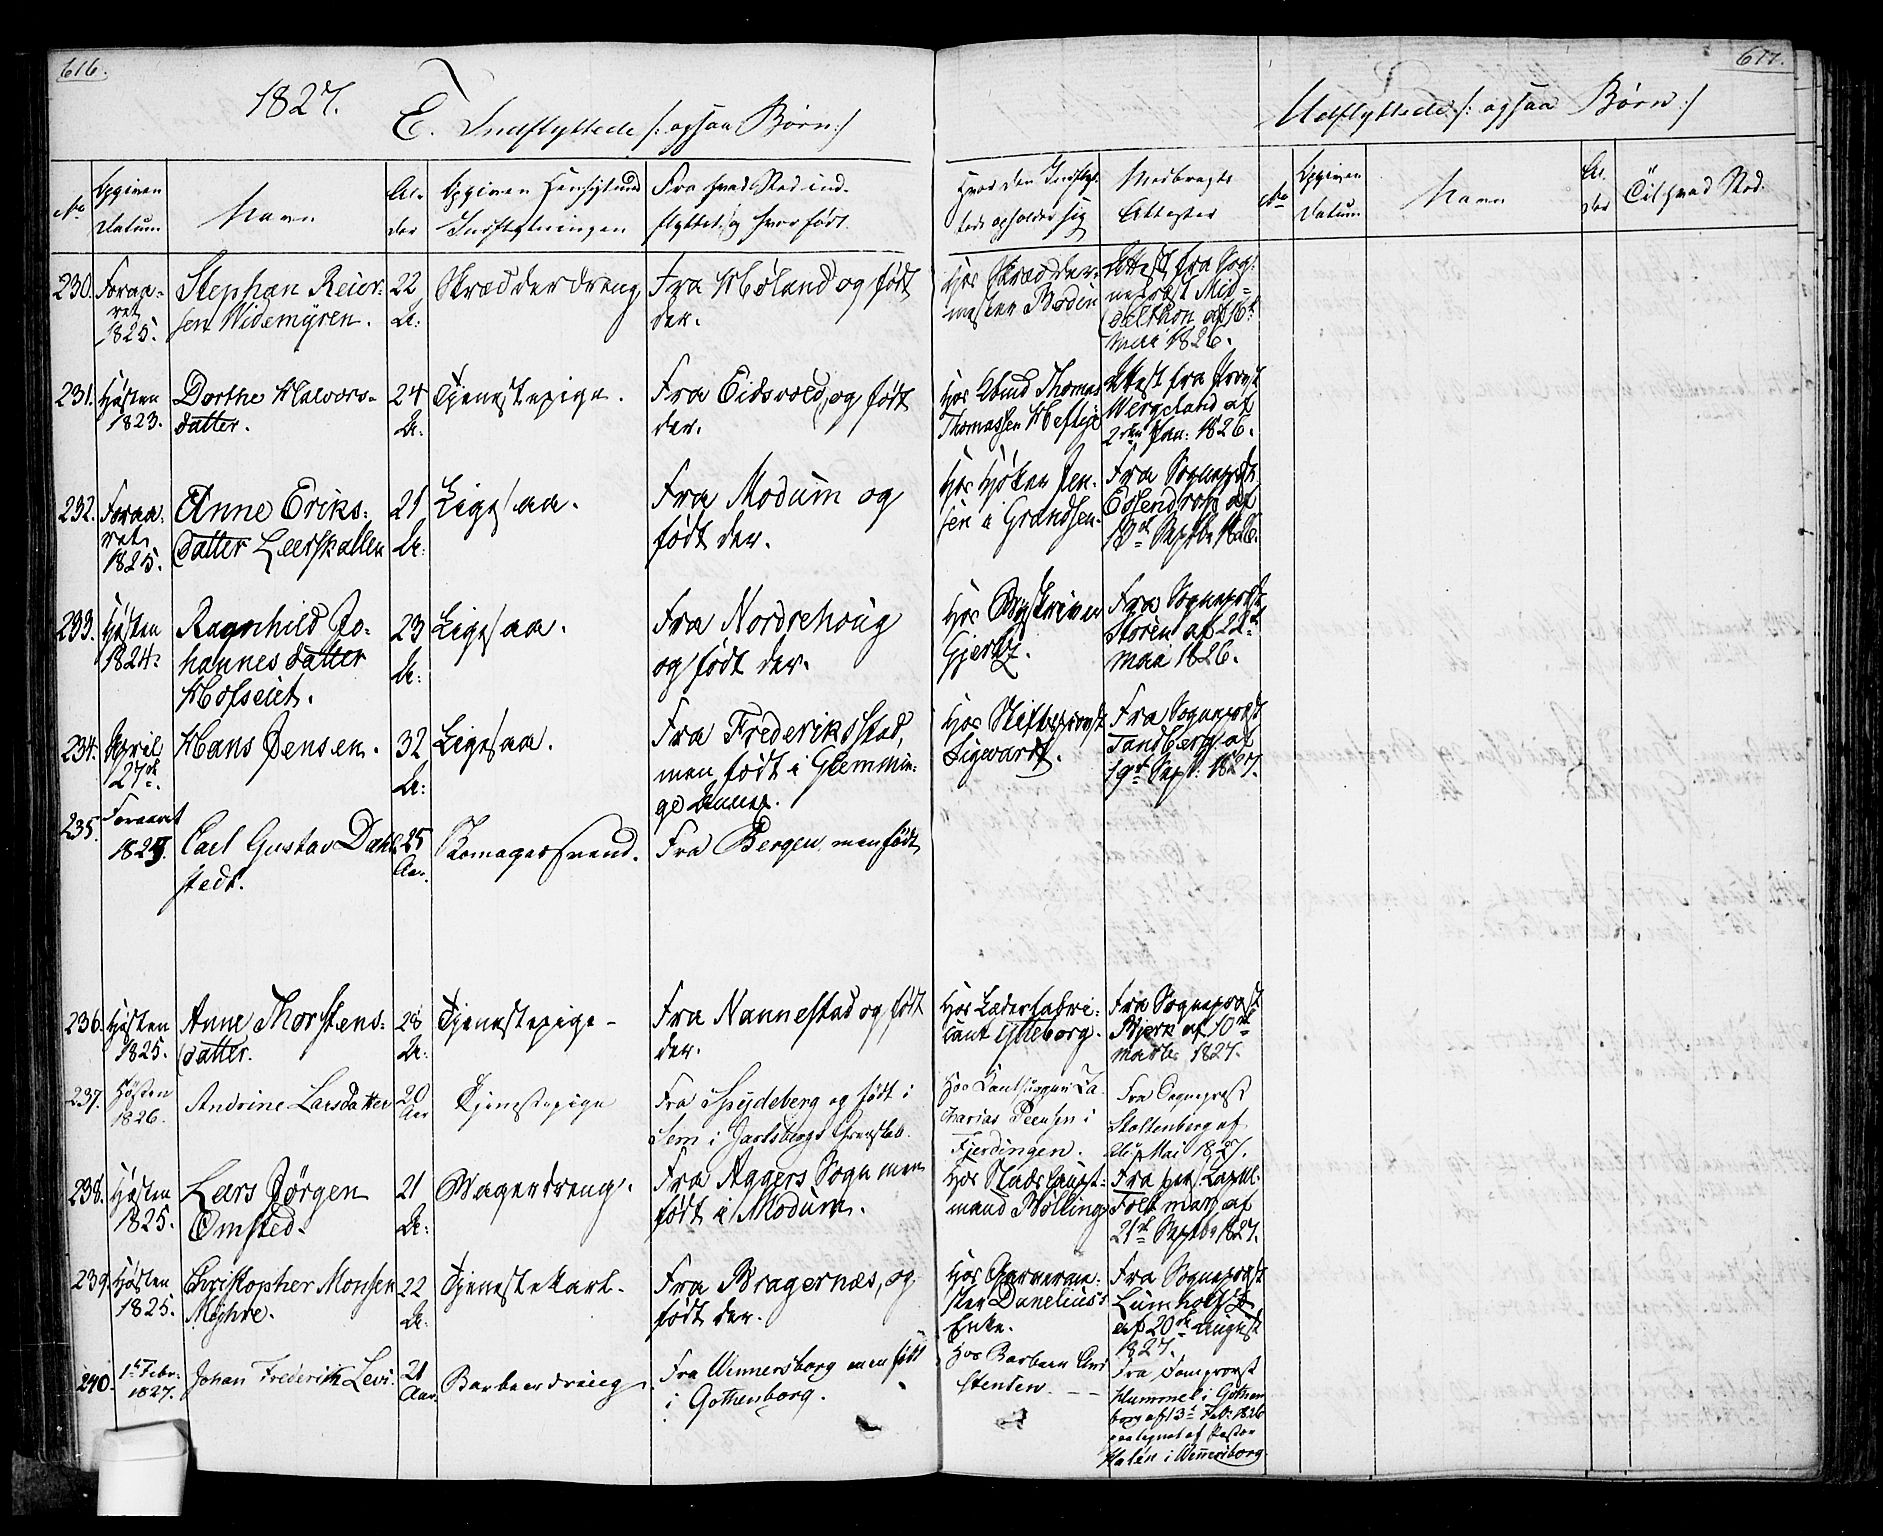 616.
1827.
E. Indflyttede /: ogsaa Børn :/
No
Opgiven
Datum
Navn
Al-
der
Opgiven Hensigt med
Indflytningen
Fra hvad Sted ind-
flyttet, og hvor født.
Hvor den Indflyt-
tede opholder sig
Medbragte
Attester
230.
Foraa-
ret
1825.
Stephan Reier-
sen Widemyren.
22
A:
Skrædderdreng
Fra Høland og født
der.
Hos Skrædder-
mester Bodin
Attest fra Sog-
neprest Mid-
delthon af 16de
Mai 1826.
231.
Høsten
1823.
Dorthe Halvors-
datter.
24
A:
Tjenestepige.
Fra Eidsvold, og født
der.
Hos Thomas
Thomassen Heftye
Attest fra Provst
Wergeland af
2den Jan: 1826.
232.
Foraa-
ret
1825.
Anne Eriks-
datter Leerskallen
21
A:
Ligesaa.
Fra Modum og
født der.
Hos Høker Jen-
sen i Grændsen.
Fra Sogneprest
Essendrop af
Septbr 1826.
233.
Høsten
1824.
Ragnhild Jo-
hannesdatter
Hofseiet.
23
A:
Ligesaa.
Fra Nordrehoug
og født der.
Hos Byskriver
Gjertz.
Fra Sogneprest
Støren af 22de
Mai 1826.
234.
April
27de.
Hans Jensen.
32
A:
Ligesaa.
Fra Frederiksstad,
men født i Glemmin-
ge Annex.
Hos Stiftsprovst
Sigwardt.
Fra Sogneprest
Tandberg af
19de Sept: 1827.
235.
Foraaret
Carl Gustav Dahl-
stedt.
25
Aar.
Skomagersvend.
Fra Bergen men født
236.
Høsten
1825.
Anne Thorstens-
datter.
28
A:
Tjenestepige-
Fra Nannestad og født
der.
Hos Læderfabri-
cant Ytteborg.
Fra Sogneprest
Bjerk af 10de
Marts 1827.
237.
Høsten
1826.
Andrine Larsdatter
20
Aar
Tjenestepige
Fra Spydeberg og født i
Sem i Jarlsbergs Grevskab.
Hos Za-
charias Peersen i
Fjerdingen.
Fra Sogneprest
Stoltenberg af
Mai 1827.
238.
Høsten
1825.
Lars Jørgen
Omsted.
21
A:
Bagerdreng.
Fra Aggers Sogn men
født i Modum.
Hos Stadshaupt-
mand Bølling
Fra pers. Capell.
Foltmar af
21de Septbr 1827.
239.
Høsten
1825.
Christopher Monsen
Myhre.
22
A:
Tjenestekarl.
Fra Bragernæs, og
født der.
Hos Garverme-
ster Danelius's
Enke.
Fra Sogneprest
Lumholtz
af 20de August
1827.
240.
1ste Febr:
1827.
Johan Frederik Levi.
21
Aar.
Barbeerdreng
Fra Wennersborg men født
i Gothenborg.
Hos Barbeer And
Stenden. - -
Fra Domprovst
Hummel i Gothen
borg af 13de Feb: 1826
paategnet af Pastor
Halén i Wennersborg
617.
Udflyttede /: ogsaa Børn :/
No
Opgiven
Datum
Navn
Al-
der
Til hvad Sted.